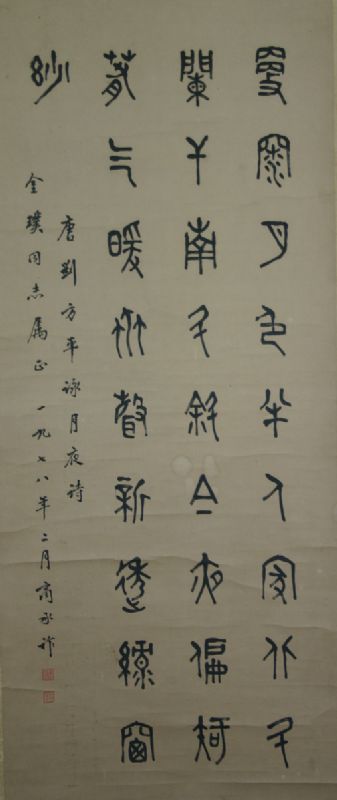 更深月色半人家北斗
闌干南斗斜今夜偏知
春气暖蟲聲新透綠窗
紗
唐劉方平詠月夜詩
金璞同志屬正 一九七八年二月商承祚